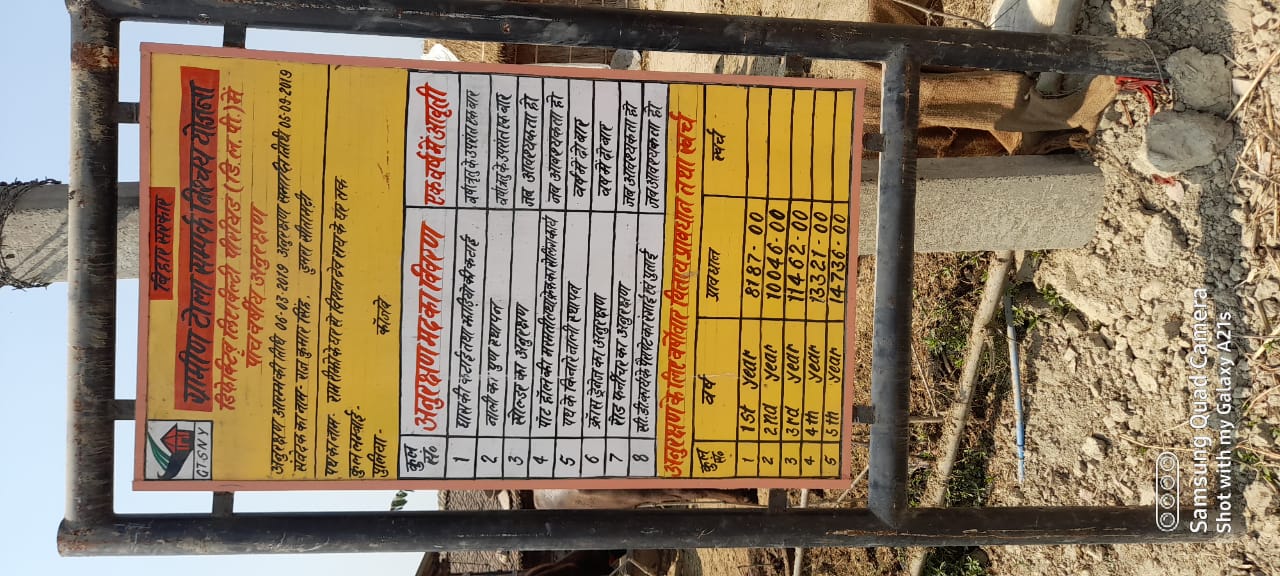 बिहार सरकार
ग्रामीण टोला सम्पर्क निश्चय योजना
GTSNY
डिफेक्टिव लिटबिल्टी पीरियड (डि.ल.पी.) में
पांच वर्षीय अनुरक्षण
अनुरक्षण आरम्भ की तिथि 06-03-2019 अनुरक्षण समाप्ति तिथी 05-09-2019
संवेदक का नाम- राज कुमार सिंह. डुमरा सीतामढ़ी
पथ का नाम- राम विवेक के घर से विसनदेव राय के घर तक
कुल लम्बाई-
पुलिया - कॅलभे
कुल मद अनुरक्षण मद का विवरण एक वर्ष में आवृती
1 घास की कटाई तथा झाड़ियो की कटाई वर्षा ऋतु के उपरांत एक बार
2 नाली का पुण स्थापन वर्षा ऋतु के उपरांत एक बार
3 सोल्डर का अनुरक्षण जब आवश्यकता हो
4 पोट होल की मरम्मती जब आवश्यकता हो
5 पथ के किनारे नाली स्थापन वर्ष में दो बार
6 क्रॉस ड्रेनेज का अनुरक्षण वर्ष में दो बार
7 रोड फर्नीचर का अनुरक्षण जब आवश्यकता हो
8 जब आवश्यकता हो
अनुरक्षण के लिए वर्षवार वितीय प्रावधान तथा खर्च
कुल मद वर्ष प्रावधान खर्च
1 1st year 8187-00
2 2nd year 10046-00
3 3rd year 11462-00
4 4th year 13321-00
5 5th year 14736-00
Samsung Quad Camera
Shot with my Galaxy A21s